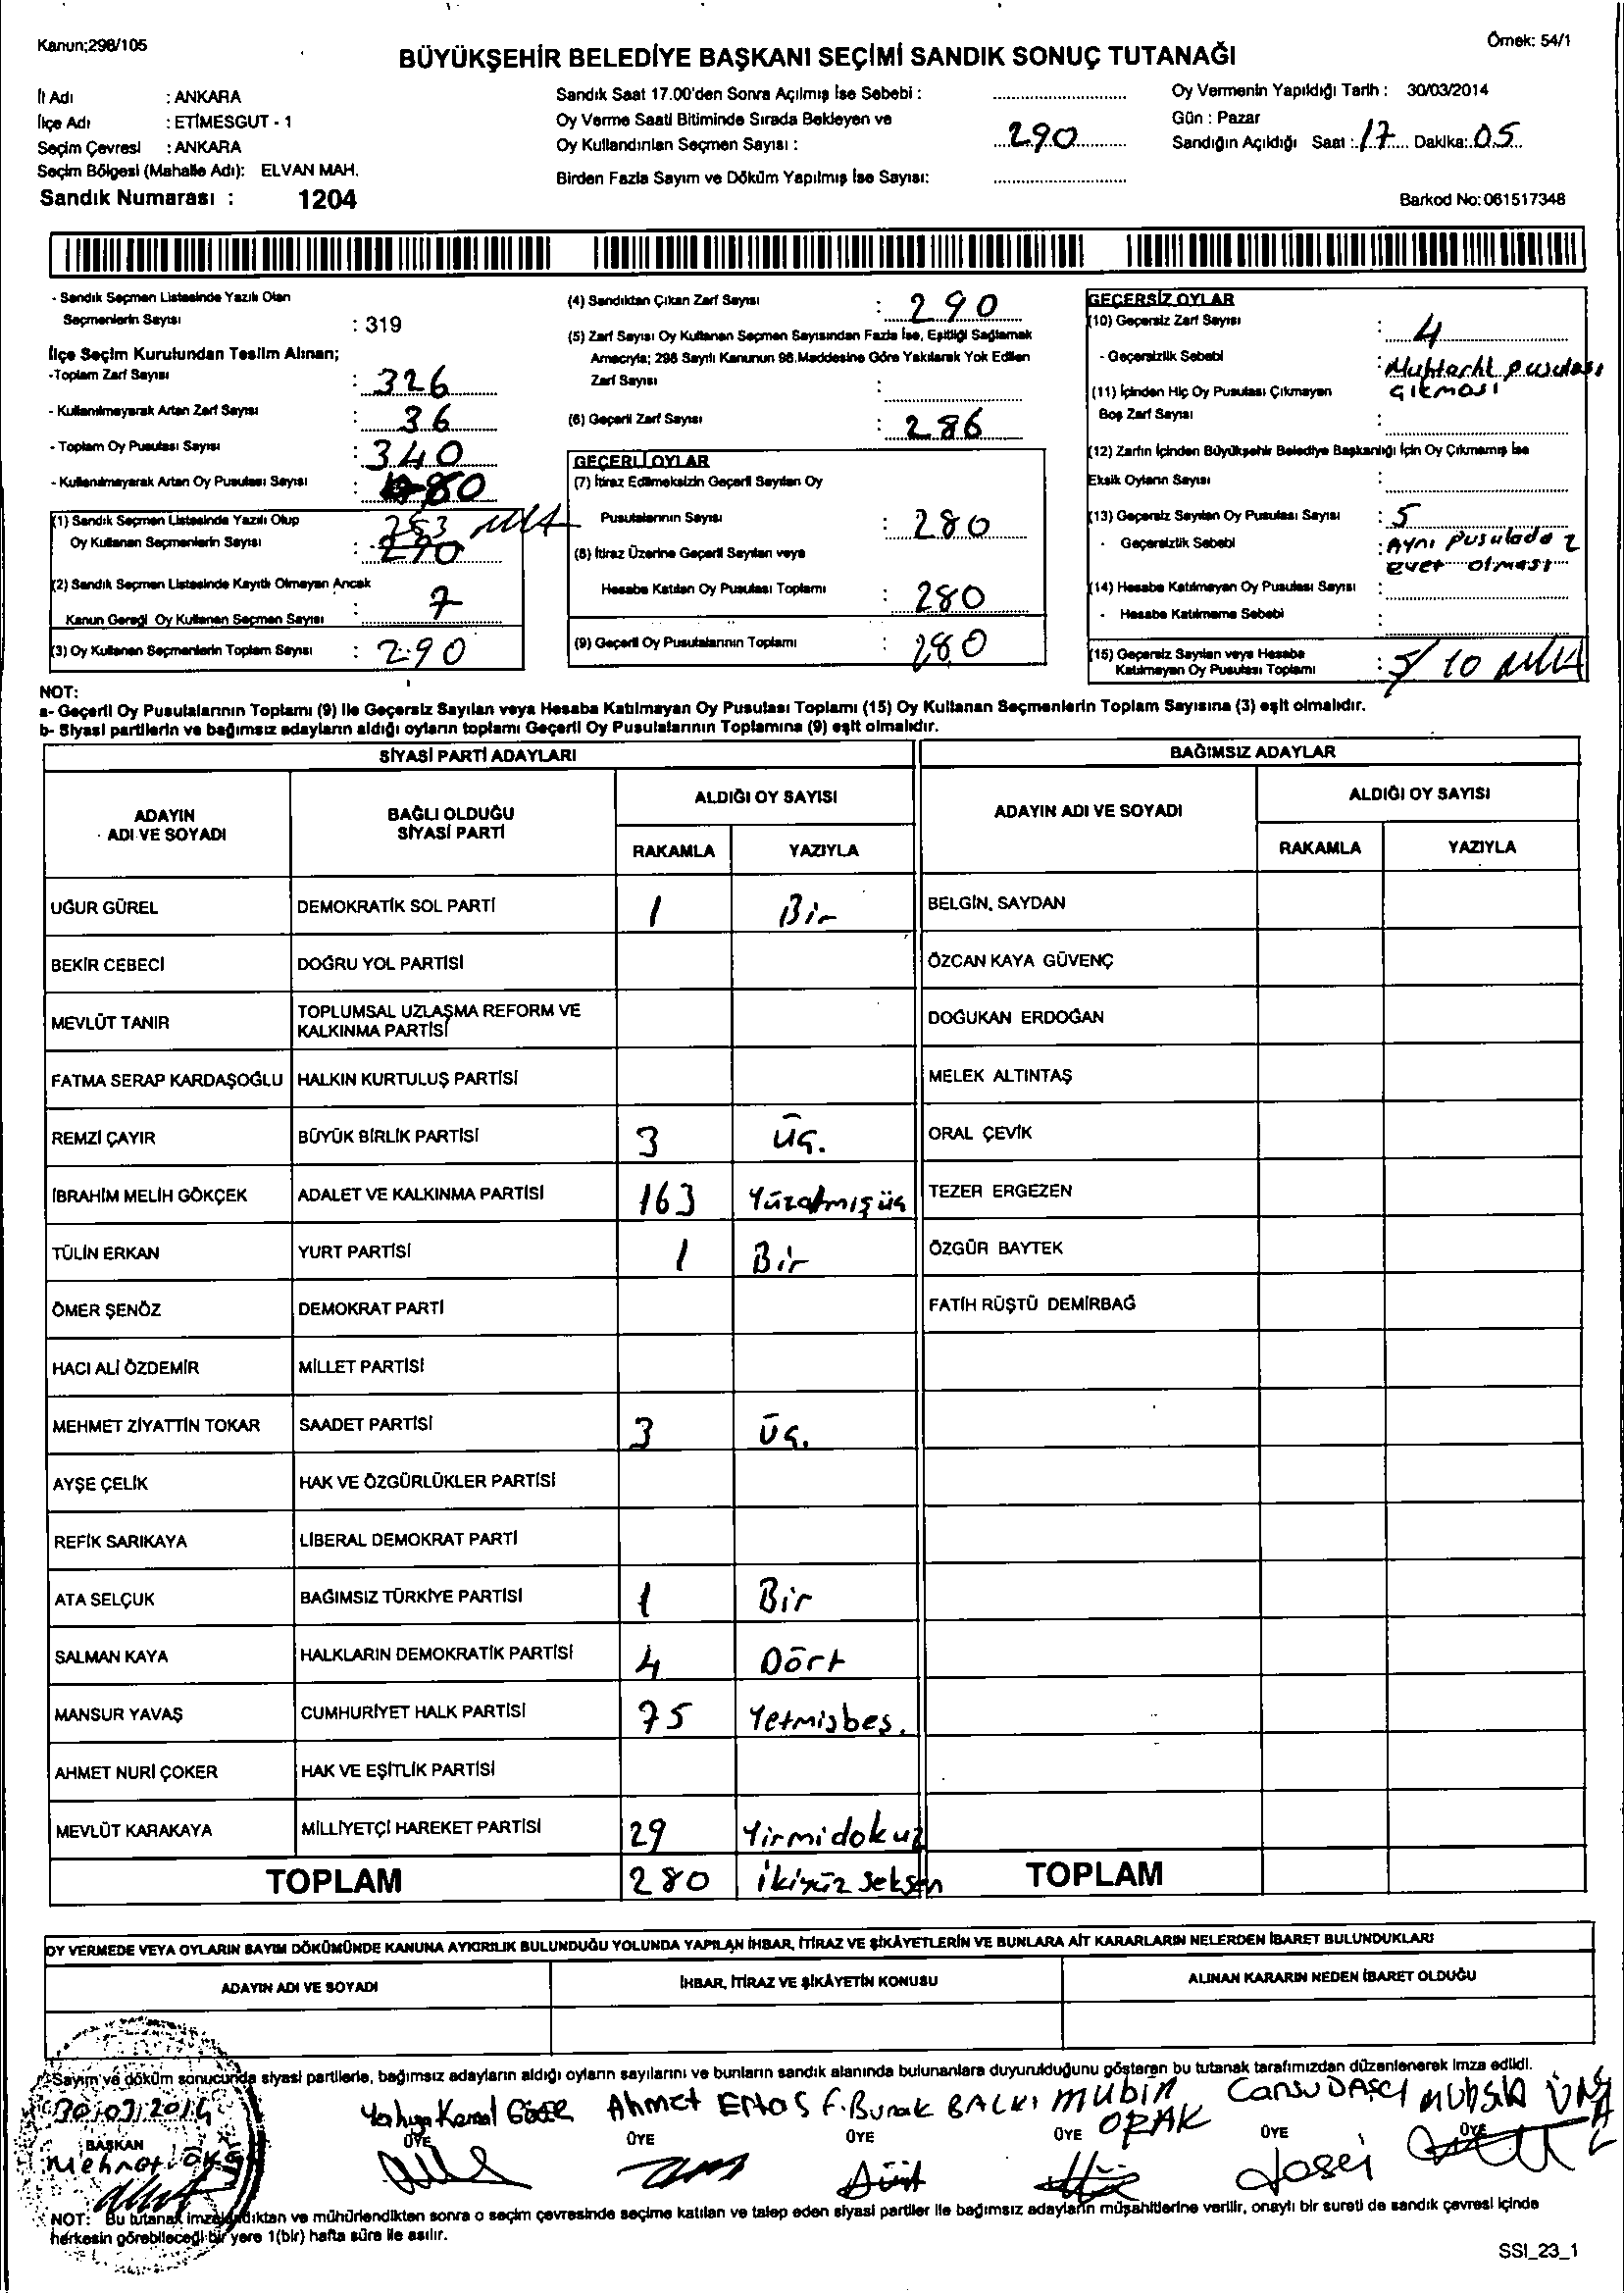 Kanun;298/105
Örnek: 54/1
BÜYÜKŞEHİR BELEDİYE BAŞKANI SEÇİMİ SANDIK SONUÇ TUTANAĞI
İl Adı : ANKARA
İlçe Adı : ETİMESGUT - 1
Seçim Çevresi : ANKARA
Seçim Bölgesi (Mahalle Adı): ELVAN MAH.
Sandık Numarası : 1204
Sandık Saat 17.00'den Sonra Açılmış İse Sebebi :
Oy Verme Saati Bitiminde Sırada Bekleyen ve
Oy Kullandırılan Seçmen Sayısı : 290
Birden Fazla Sayım ve Döküm Yapılmış İse Sayısı:
Oy Vermenin Yapıldığı Tarih : 30/03/2014
Gün : Pazar
Sandığın Açıldığı Saat : 17 Dakika: 05
Barkod No: 061517348
- Sandık Seçmen Listesinde Yazılı Olan
Seçmenlerin Sayısı : 319
İlçe Seçim Kurulundan Teslim Alınan;
-Toplam Zarf Sayısı : 326
- Kullanılmayarak Artan Zarf Sayısı : 36
- Toplam Oy Pusulası Sayısı : 340
- Kullanılmayarak Artan Oy Pusulası Sayısı : 80
(1) Sandık Seçmen Listesinde Yazılı Olup 283
Oy Kullanan Seçmenlerin Sayısı : 290
(2) Sandık Seçmen Listesinde Kayıtlı Olmayan Ancak
Kanun Gereği Oy Kullanan Seçmen Sayısı : 7
(3) Oy Kullanan Seçmenlerin Toplam Sayısı : 290
(4) Sandıktan Çıkan Zarf Sayısı : 290
(5) Zarf Sayısı Oy Kullanan Seçmen Sayısından Fazla İse, Eşitliği Sağlamak
Amacıyla; 298 Sayılı Kanunun 98.Maddesine Göre Yakılarak Yok Edilen
Zarf Sayısı :
(6) Geçerli Zarf Sayısı : 286
GEÇERLİ OYLAR
(7) İtiraz Edilmeksizin Geçerli Sayılan Oy
Pusulalarının Sayısı : 280
(8) İtiraz Üzerine Geçerli Sayılan veya
Hesaba Katılan Oy Pusulası Toplamı : 280
(9) Geçerli Oy Pusulalarının Toplamı : 280
GEÇERSİZ OYLAR
(10) Geçersiz Zarf Sayısı : 4
- Geçersizlik Sebebi : Muhtarlık pusulası
çıkması
(11) İçinden Hiç Oy Pusulası Çıkmayan
Boş Zarf Sayısı :
(12) Zarfın İçinden Büyükşehir Belediye Başkanlığı İçin Oy Çıkmamış İse
Eksik Oyların Sayısı :
(13) Geçersiz Sayılan Oy Pusulası Sayısı : 5
- Geçersizlik Sebebi : Aynı Pusulada 2
evet olması
(14) Hesaba Katılmayan Oy Pusulası Sayısı :
- Hesaba Katılmama Sebebi :
(15) Geçersiz Sayılan veya Hesaba
Katılmayan Oy Pusulası Toplamı : 5 10
NOT:
a- Geçerli Oy Pusulalarının Toplamı (9) ile Geçersiz Sayılan veya Hesaba Katılmayan Oy Pusulası Toplamı (15) Oy Kullanan Seçmenlerin Toplam Sayısına (3) eşit olmalıdır.
b- Siyasi partilerin ve bağımsız adayların aldığı oyların toplamı Geçerli Oy Pusulalarının Toplamına (9) eşit olmalıdır.
SİYASİ PARTİ ADAYLARI
BAĞIMSIZ ADAYLAR
ADAYIN ADI VE SOYADI
BAĞLI OLDUĞU SİYASİ PARTİ
ALDIĞI OY SAYISI
RAKAMLA YAZIYLA
ADAYIN ADI VE SOYADI
ALDIĞI OY SAYISI
RAKAMLA YAZIYLA
UĞUR GÜREL DEMOKRATİK SOL PARTİ 1 Bir BELGİN, SAYDAN
BEKİR CEBECİ DOĞRU YOL PARTİSİ ÖZCAN KAYA GÜVENÇ
MEVLÜT TANIR TOPLUMSAL UZLAŞMA REFORM VE KALKINMA PARTİSİ DOĞUKAN ERDOĞAN
FATMA SERAP KARDAŞOĞLU HALKIN KURTULUŞ PARTİSİ MELEK ALTINTAŞ
REMZİ ÇAYIR BÜYÜK BİRLİK PARTİSİ 3 üç. ORAL ÇEVİK
İBRAHİM MELİH GÖKÇEK ADALET VE KALKINMA PARTİSİ 163 Yüzatmışüç TEZER ERGEZEN
TÜLİN ERKAN YURT PARTİSİ 1 Bir ÖZGÜR BAYTEK
ÖMER ŞENÖZ DEMOKRAT PARTİ FATİH RÜŞTÜ DEMİRBAĞ
HACI ALİ ÖZDEMİR MİLLET PARTİSİ
MEHMET ZİYATTİN TOKAR SAADET PARTİSİ 3 Üç.
AYŞE ÇELİK HAK VE ÖZGÜRLÜKLER PARTİSİ
REFİK SARIKAYA LİBERAL DEMOKRAT PARTİ
ATA SELÇUK BAĞIMSIZ TÜRKİYE PARTİSİ 1 Bir
SALMAN KAYA HALKLARIN DEMOKRATİK PARTİSİ 4 Dört
MANSUR YAVAŞ CUMHURİYET HALK PARTİSİ 75 Yetmisbeş.
AHMET NURİ ÇOKER HAK VE EŞİTLİK PARTİSİ
MEVLÜT KARAKAYA MİLLİYETÇİ HAREKET PARTİSİ 29 Yirmidokuz
TOPLAM 280 ikiyüz seksen TOPLAM
OY VERMEDE VEYA OYLARIN SAYIM DÖKÜMÜNDE KANUNA AYKIRILIK BULUNDUĞU YOLUNDA YAPILAN İHBAR, İTİRAZ VE ŞİKÂYETLERİN VE BUNLARA AİT KARARLARIN NELERDEN İBARET BULUNDUKLARI
ADAYIN ADI VE SOYADI İHBAR, İTİRAZ VE ŞİKÂYETİN KONUSU ALINAN KARARIN NEDEN İBARET OLDUĞU
Sayım ve döküm sonucunda siyasi partilerle, bağımsız adayların aldığı oyların sayılarını ve bunların sandık alanında bulunanlara duyurulduğunu gösteren bu tutanak tarafımızdan düzenlenerek imza edildi.
30/03/2014 Yahya Kemal Ahmet Ertas F. Burak BALKI MUBİN ORAK Cansu DAŞCI
BAŞKAN ÜYE ÜYE ÜYE ÜYE ÜYE ÜYE
Mehmet
NOT: Bu tutanak imzalandıktan ve mühürlendikten sonra o seçim çevresinde seçime katılan ve talep eden siyasi partiler ile bağımsız adayların müşahitlerine verilir, onaylı bir sureti de sandık çevresi içinde
herkesin görebileceği bir yere 1(bir) hafta süre ile asılır.
SSI_23_1